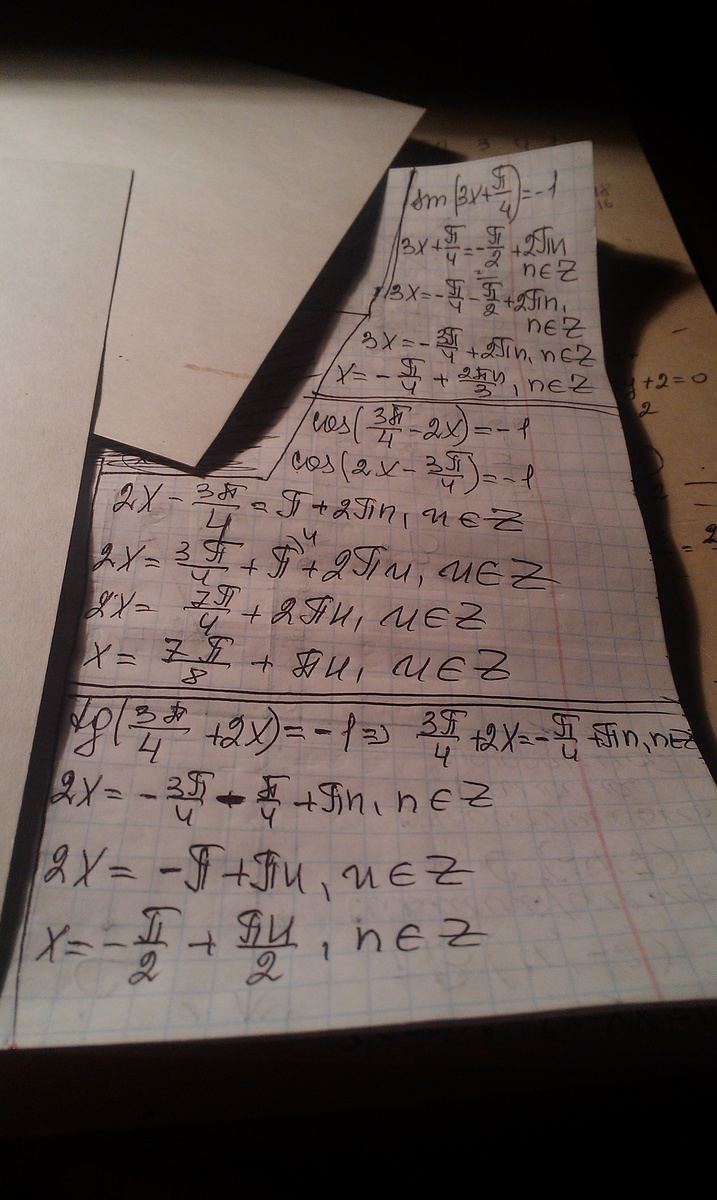 sin(3x+π/4)=-1
3x+π/4=-π/2+2πn
n∈Z
3x=-π/4-π/2+2πn,
n∈Z
3x=-3π/4+2πn, n∈Z
x=-π/4+2πn/3, n∈Z
cos(3π/4-2x)=-1
cos(2x-3π/4)=-1
2x-3π/4=π+2πn, n∈Z
2x=3π/4+π⁾⁴+2πn, n∈Z
2x=7π/4+2πn, n∈Z
x=7π/8+πn, n∈Z
tg(3π/4+2x)=-1⇒ 3π/4+2x=-π/4+πn, n∈Z
2x=-3π/4-π/4+πn, n∈Z
2x=-π+πn, n∈Z
x=-π/2+πn/2, n∈Z
+2=0
2